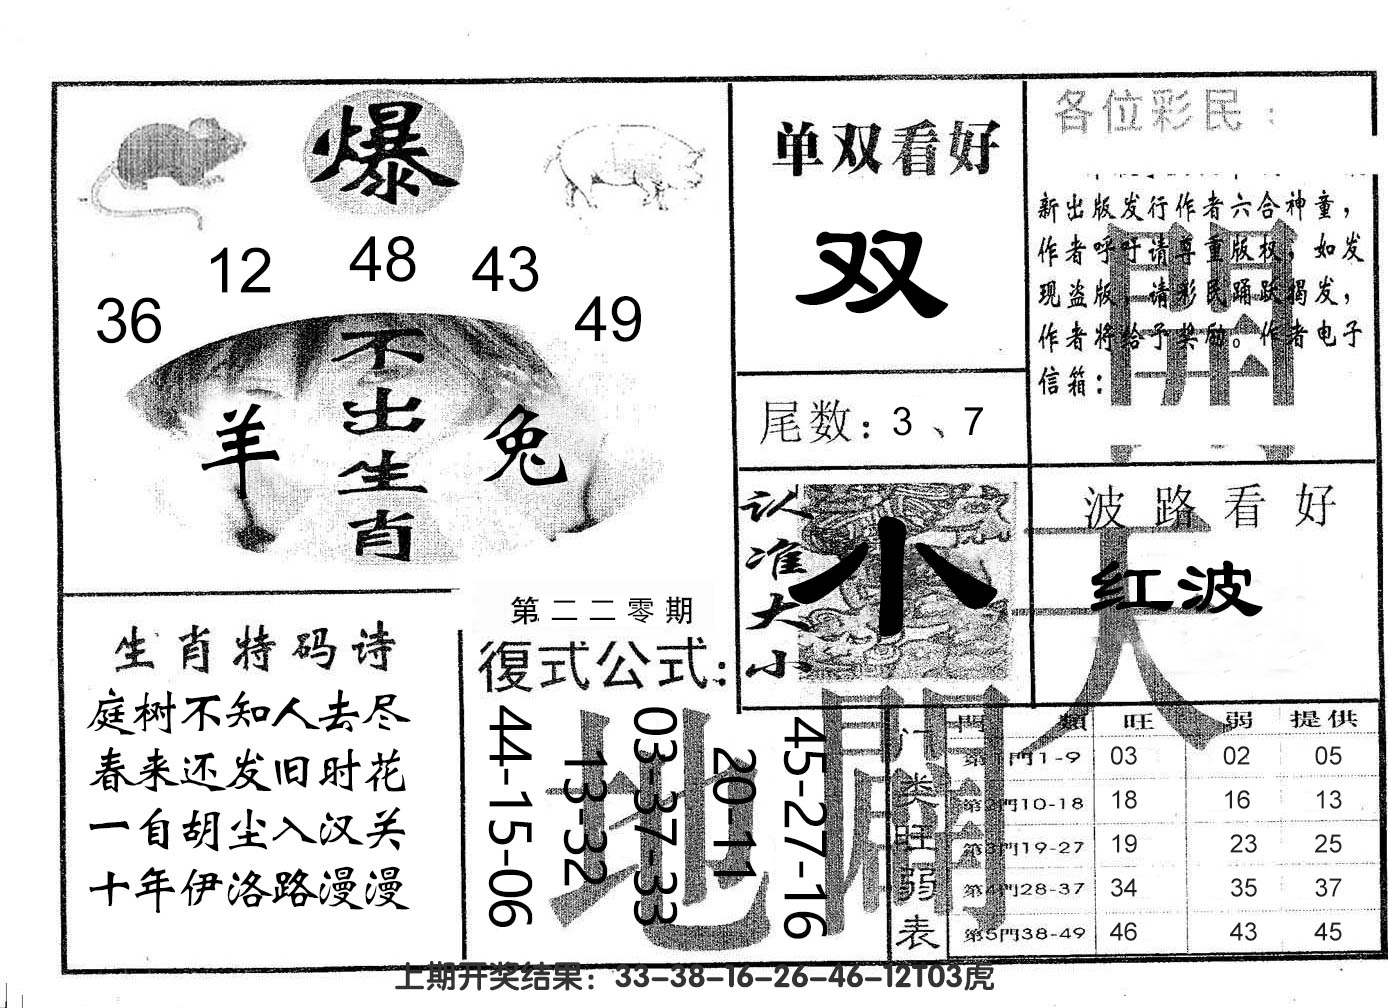 爆
36
12
48
43
49
不出生肖
羊
兔
单双看好
双
尾数：3、7
认准大小
小
各位彩民：
新出版发行作者六合神童，
作者呼吁请尊重版权，如发
现盗版，请彩民踊跃揭发，
作者将给予奖励。作者电子
信箱：
波路看好
红波
生肖特码诗
庭树不知人去尽
春来还发旧时花
一自胡尘入汉关
十年伊洛路漫漫
第二二零期
復式公式：
44-15-06
13-32
03-37-33
20-11
45-27-16
天
地
開
闢
门类旺弱表
門 類 旺 弱 提供
第1門1-9 03 02 05
第2門10-18 18 16 13
第3門19-27 19 23 25
第4門28-37 34 35 37
第5門38-49 46 43 45
上期开奖结果：33-38-16-26-46-12T03虎